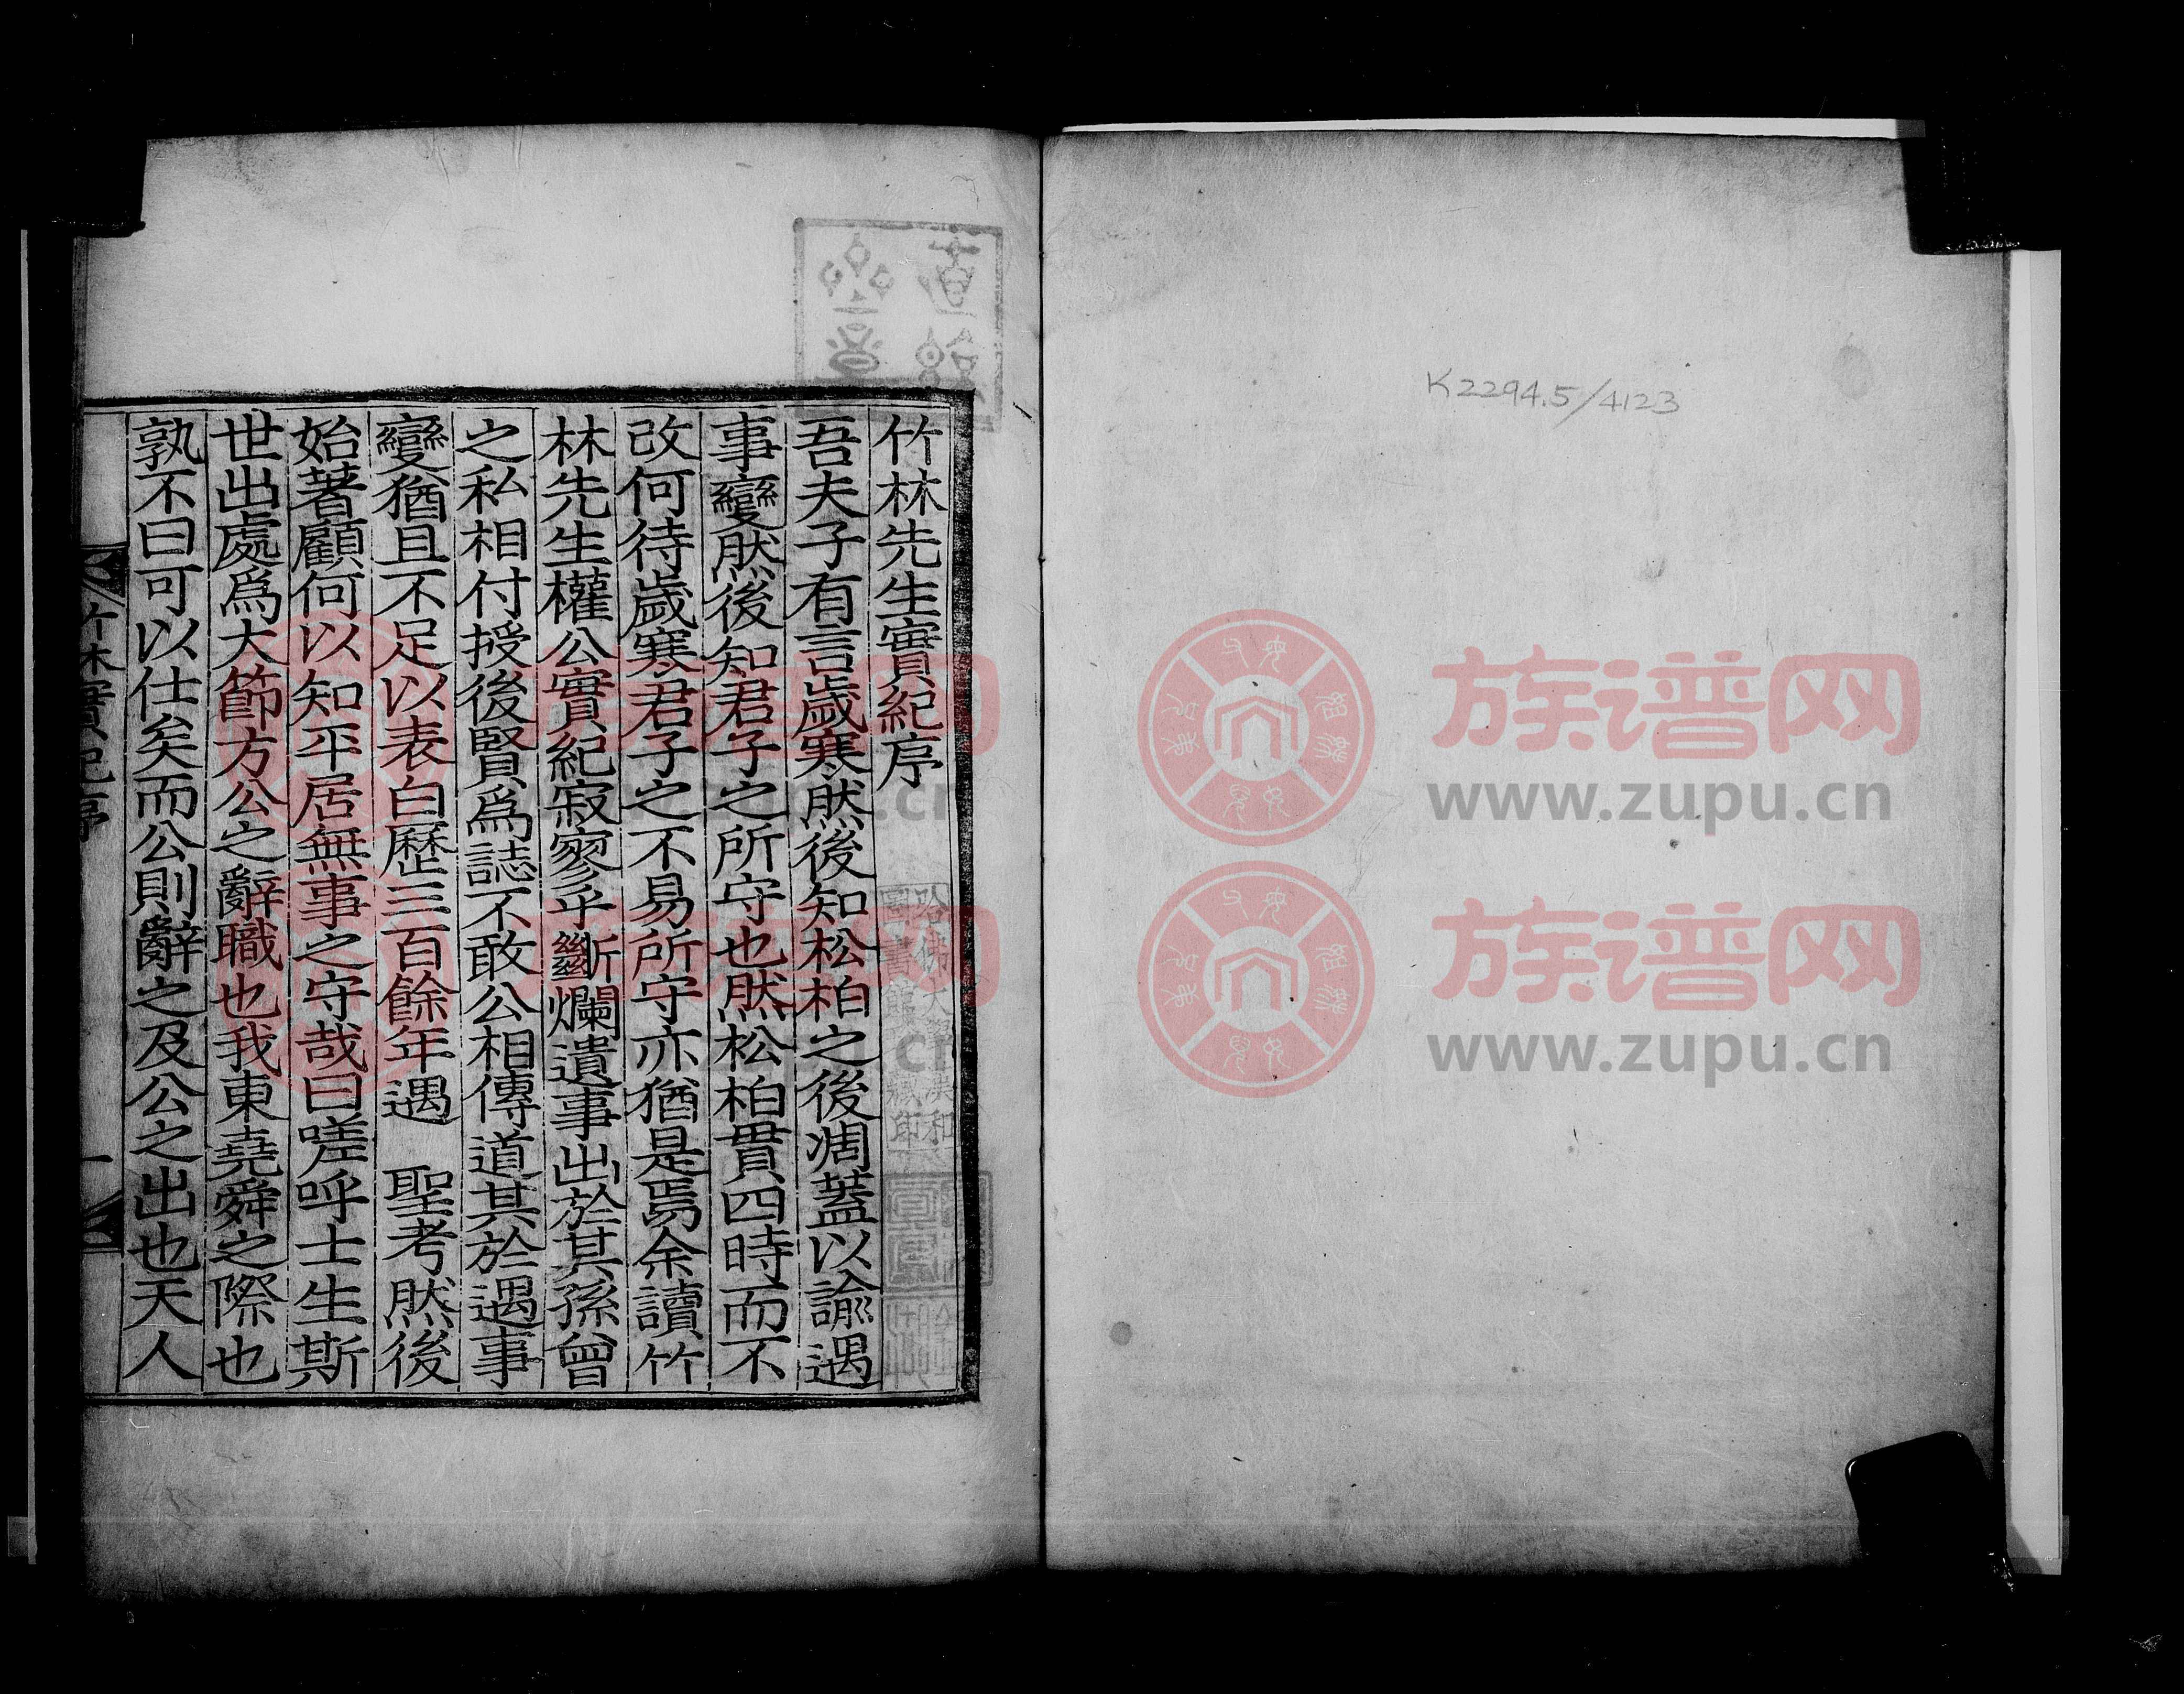 K2294.5/4123
竹林先生實紀序
吾夫子有言歲寒然後知松柏之後凋蓋以諭遇
事變然後知君子之所守也然松柏貫四時而不
改何待歲寒君子之不易所守亦猶是焉余讀竹
林先生權公實紀寂寥乎斷爛遺事出於其孫曾
之私相付授後賢爲誌不敢公相傳道其於遇事
變猶且不足以表白歷三百餘年遇 聖考然後
始著顧何以知平居無事之守哉曰嗟呼士生斯
世出處爲大節方公之辭職也我東堯舜之際也
孰不曰可以仕矣而公則辭之及公之出也天人
竹林實紀序 一
哈佛大學漢和
圖書館藏印
族谱网
www.zupu.cn
族谱网
www.zupu.cn